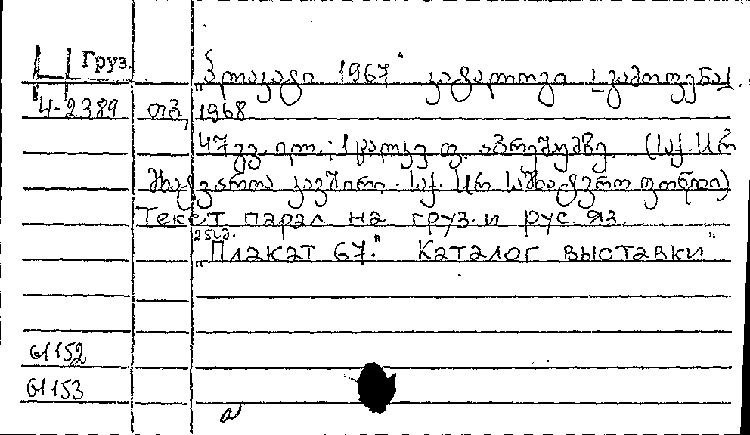 Груз.
Ч
„პლაკატი 1967" კატალოგი [გამოფენა].
Ч-2389 თბ, 1968
47 გვ. ილ.; 1 ფ. აბრეშუმზე. (საქ. სსრ
მხატვართა კავშირი. საქ. სსრ სამხატვრო ფონდი)
Текст парал на груз. и рус яз.
„Плакат 67." Каталог выставки"
61152
61153